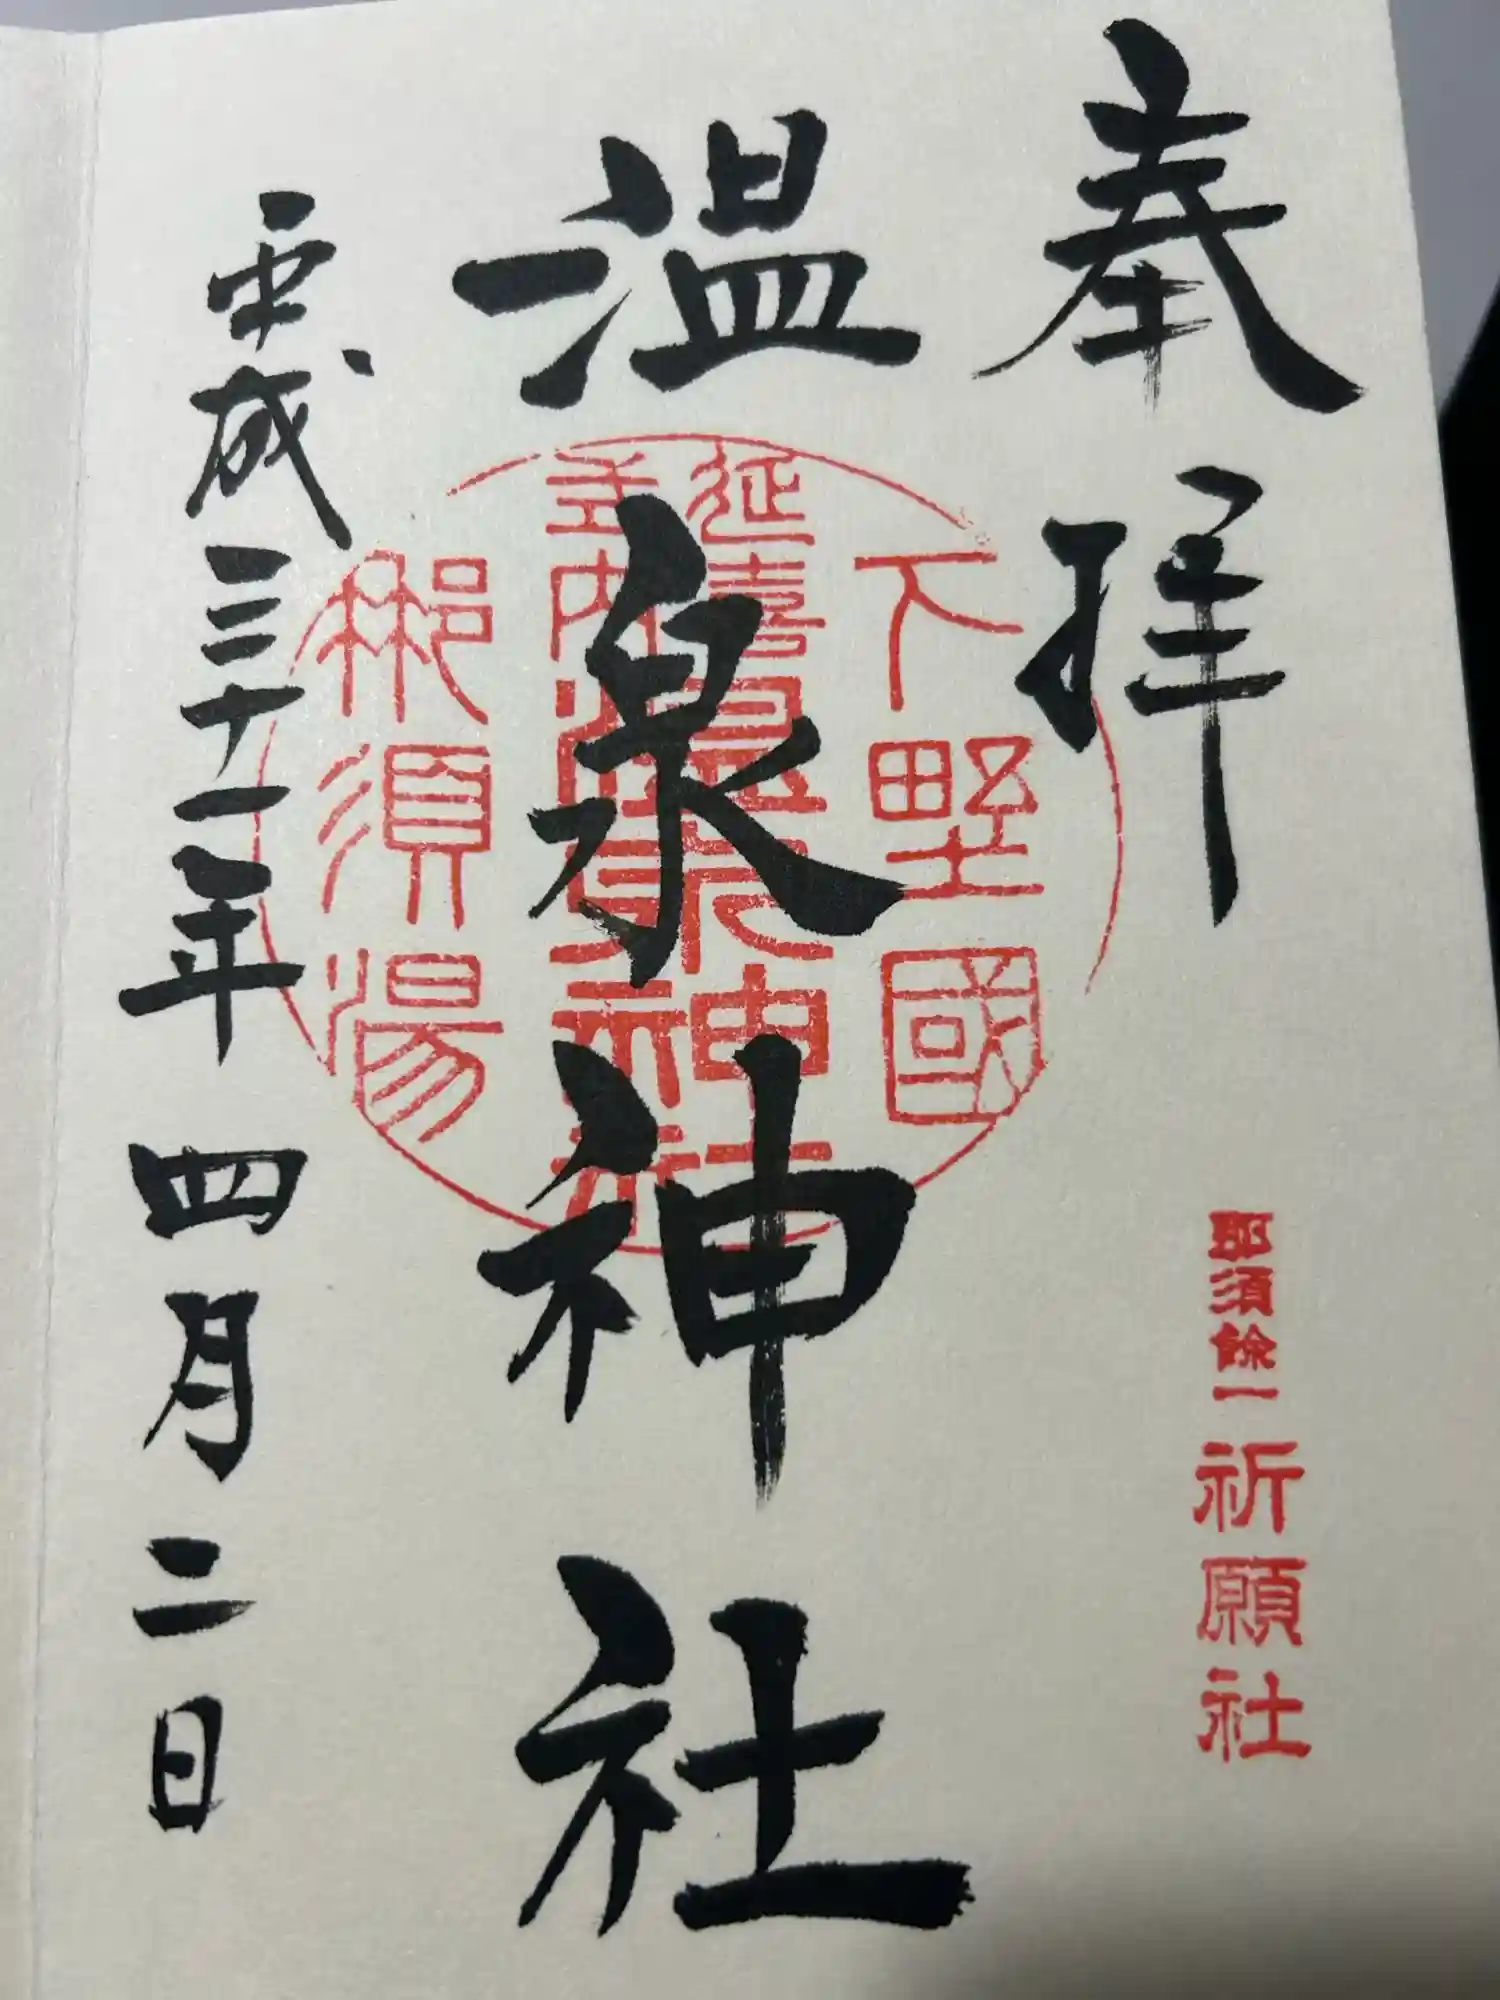 奉拝
那須餘一 祈願社
温泉神社
下野國
延喜式内
温泉神社
那須湯
平成三十一年四月二日